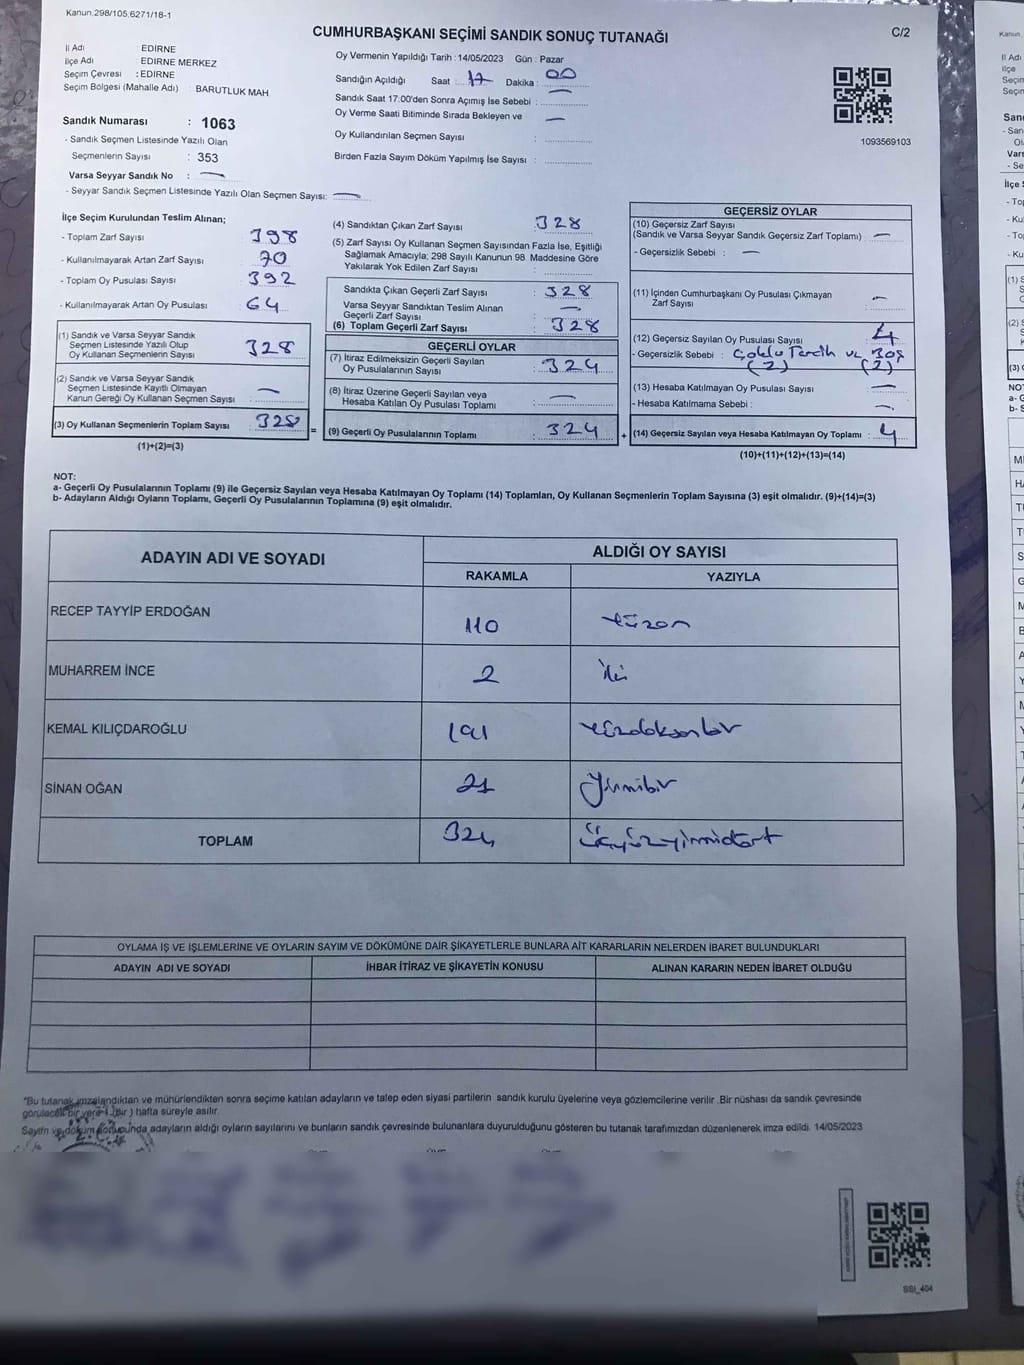 Kanun.298/105,6271/18-1
CUMHURBAŞKANI SEÇİMİ SANDIK SONUÇ TUTANAĞI
C/2
İl Adı EDİRNE
İlçe Adı EDİRNE MERKEZ
Seçim Çevresi :EDİRNE
Seçim Bölgesi (Mahalle Adı) BARUTLUK MAH.
Sandık Numarası : 1063
- Sandık Seçmen Listesinde Yazılı Olan
Seçmenlerin Sayısı : 353
Varsa Seyyar Sandık No : —
- Seyyar Sandık Seçmen Listesinde Yazılı Olan Seçmen Sayısı: —
Oy Vermenin Yapıldığı Tarih :14/05/2023 Gün : Pazar
Sandığın Açıldığı Saat : 17 Dakika : 00
Sandık Saat 17:00'den Sonra Açımış İse Sebebi : —
Oy Verme Saati Bitiminde Sırada Bekleyen ve —
Oy Kullandırılan Seçmen Sayısı :
Birden Fazla Sayım Döküm Yapılmış İse Sayısı :
1093569103
İlçe Seçim Kurulundan Teslim Alınan;
- Toplam Zarf Sayısı : 398
- Kullanılmayarak Artan Zarf Sayısı : 70
- Toplam Oy Pusulası Sayısı : 392
- Kullanılmayarak Artan Oy Pusulası : 64
(1) Sandık ve Varsa Seyyar Sandık
Seçmen Listesinde Yazılı Olup
Oy Kullanan Seçmenlerin Sayısı : 328
(2) Sandık ve Varsa Seyyar Sandık
Seçmen Listesinde Kayıtlı Olmayan
Kanun Gereği Oy Kullanan Seçmen Sayısı : —
(3) Oy Kullanan Seçmenlerin Toplam Sayısı : 328
(1)+(2)=(3)
(4) Sandıktan Çıkan Zarf Sayısı : 328
(5) Zarf Sayısı Oy Kullanan Seçmen Sayısından Fazla İse, Eşitliği
Sağlamak Amacıyla; 298 Sayılı Kanunun 98. Maddesine Göre
Yakılarak Yok Edilen Zarf Sayısı :
Sandıkta Çıkan Geçerli Zarf Sayısı : 328
Varsa Seyyar Sandıktan Teslim Alınan
Geçerli Zarf Sayısı : —
(6) Toplam Geçerli Zarf Sayısı : 328
GEÇERLİ OYLAR
(7) İtiraz Edilmeksizin Geçerli Sayılan
Oy Pusulalarının Sayısı : 324
(8) İtiraz Üzerine Geçerli Sayılan veya
Hesaba Katılan Oy Pusulası Toplamı : —
= (9) Geçerli Oy Pusulalarının Toplamı : 324
GEÇERSİZ OYLAR
(10) Geçersiz Zarf Sayısı
(Sandık ve Varsa Seyyar Sandık Geçersiz Zarf Toplamı) : —
- Geçersizlik Sebebi : —
(11) İçinden Cumhurbaşkanı Oy Pusulası Çıkmayan
Zarf Sayısı : —
(12) Geçersiz Sayılan Oy Pusulası Sayısı : 4
- Geçersizlik Sebebi : Çoklu Tercih ve Boş
(2) (2)
(13) Hesaba Katılmayan Oy Pusulası Sayısı : —
- Hesaba Katılmama Sebebi : —
+ (14) Geçersiz Sayılan veya Hesaba Katılmayan Oy Toplamı : 4
(10)+(11)+(12)+(13)=(14)
NOT:
a- Geçerli Oy Pusulalarının Toplamı (9) ile Geçersiz Sayılan veya Hesaba Katılmayan Oy Toplamı (14) Toplamları, Oy Kullanan Seçmenlerin Toplam Sayısına (3) eşit olmalıdır. (9)+(14)=(3)
b- Adayların Aldığı Oyların Toplamı, Geçerli Oy Pusulalarının Toplamına (9) eşit olmalıdır.
ADAYIN ADI VE SOYADI ALDIĞI OY SAYISI
RAKAMLA YAZIYLA
RECEP TAYYİP ERDOĞAN 110 Yüzon
MUHARREM İNCE 2 İki
KEMAL KILIÇDAROĞLU 191 Yüzdoksanbir
SİNAN OĞAN 21 Yirmibir
TOPLAM 324 Üçyüzyirmidört
OYLAMA İŞ VE İŞLEMLERİNE VE OYLARIN SAYIM VE DÖKÜMÜNE DAİR ŞİKAYETLERLE BUNLARA AİT KARARLARIN NELERDEN İBARET BULUNDUKLARI
ADAYIN ADI VE SOYADI İHBAR İTİRAZ VE ŞİKAYETİN KONUSU ALINAN KARARIN NEDEN İBARET OLDUĞU
*Bu tutanak imzalandıktan ve mühürlendikten sonra seçime katılan adayların ve talep eden siyasi partilerin sandık kurulu üyelerine veya gözlemcilerine verilir .Bir nüshası da sandık çevresinde
görülecek bir yere 1 (Bir ) hafta süreyle asılır.
Sayım ve döküm sonucunda adayların aldığı oyların sayılarını ve bunların sandık çevresinde bulunanlara duyurulduğunu gösteren bu tutanak tarafımızdan düzenlenerek imza edildi. 14/05/2023
SSI_404